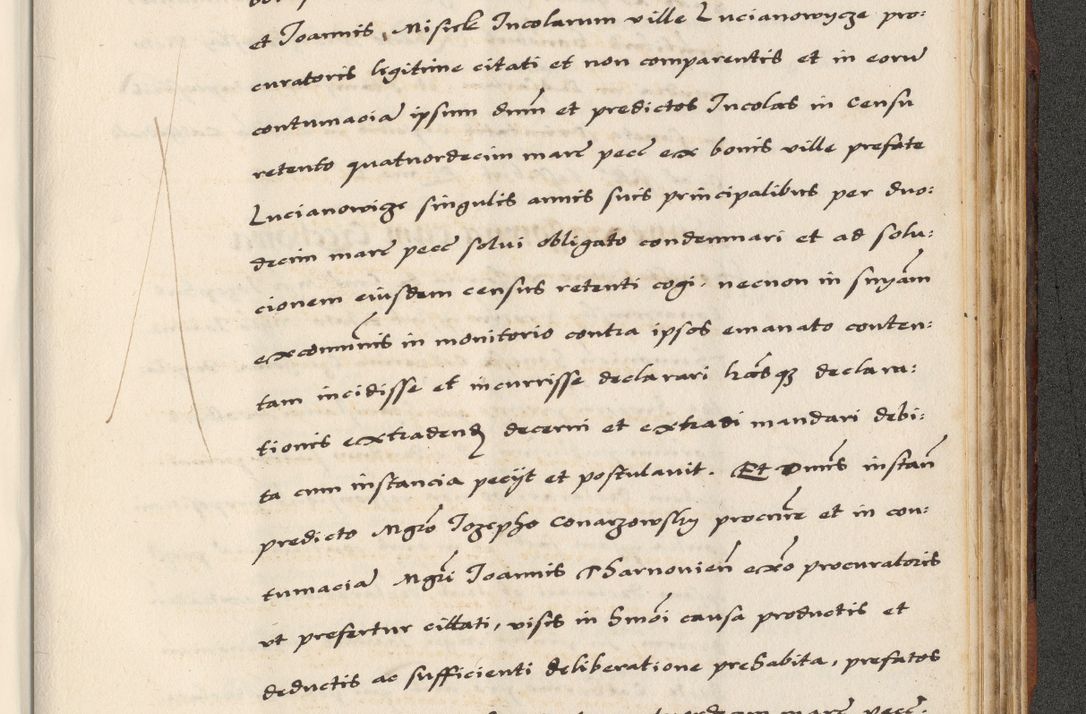 et Joannis, Misiek Incolarum ville Lucianowycze pro:
curatoris legitime citati et non comparentis et in eorū
contumacia ipsum dnm̄ et predictos Incolas in censu
retento quatuordecim marc̄ pecc̄ ex bonis ville prefate
Lucianowicze singulis annis suis principalibus per duo:
decim marc̄ pecc̄ solui obligato condemnari et ad solu:
cionem eiusdem census retenti cogi, necnon in snỹam
excom̄nis in monitorio contra ipsos emanato conten:
tam incidisse et incurrisse declarari lrāsqꝫ declara:
tionis extradendꝫ decerni et extradi mandari debi:
ta cum instancia pecijt et postulauit. Et Dnūs instan̄
predicto Mgrō Jozepho Conarzowsky procurē et in con:
tumaciā Mgrī Joannis Tharnouien̄ exrō procuratoris
vt prefertur citati, visis in hmōi causa productis et
deductis ac sufficienti deliberatione prehabita, prefatos
marc̄ pecc̄.